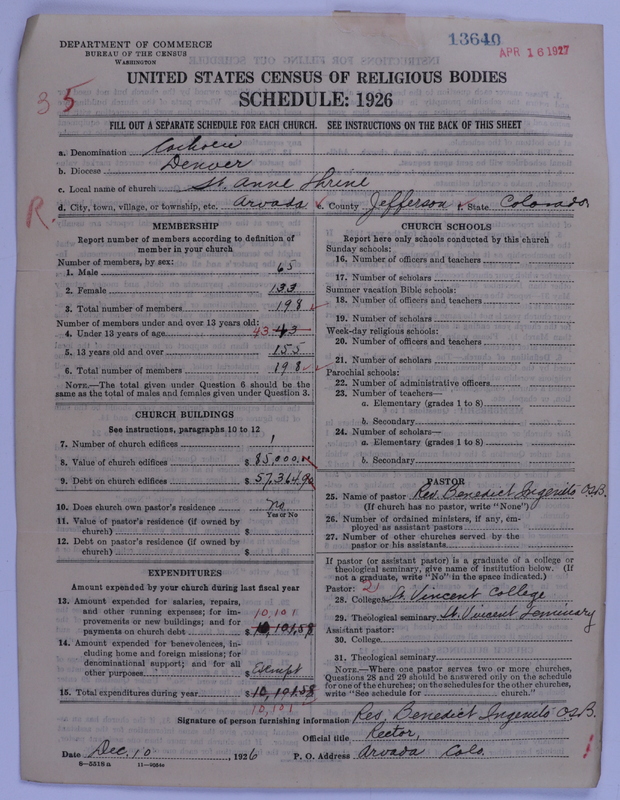 DEPARTMENT OF COMMERCE
BUREAU OF THE CENSUS
WASHINGTON
13640
APR 16 1927
UNITED STATES CENSUS OF RELIGIOUS BODIES
SCHEDULE: 1926
35
FILL OUT A SEPARATE SCHEDULE FOR EACH CHURCH. SEE INSTRUCTIONS ON THE BACK OF THIS SHEET
a. Denomination
b. Diocese Denver
c. Local name of church St. Anne Shrine
d. City, town, village, or township, etc. Arvada e. County Jefferson f. State Colorado
R.
MEMBERSHIP
Report number of members according to definition of
member in your church
Number of members, by sex:
1. Male 65
2. Female 133
3. Total number of members 198
Number of members under and over 13 years old:
4. Under 13 years of age 43 43
5. 13 years old and over 155
6. Total number of members 198
NOTE.—The total given under Question 6 should be
same as the total of males and females given under Question 3.
CHURCH BUILDINGS
See instructions, paragraphs 10 to 12
7. Number of church edifices 1
8. Value of church edifices $ 85,000.00
9. Debt on church edifices $ 57,364.90
10. Does church own pastor's residence no
Yes or No
11. Value of pastor's residence (if owned by
church) $
12. Debt on pastor's residence (if owned by
church) $
EXPENDITURES
Amount expended by your church during last fiscal year
13. Amount expended for salaries, repairs,
and other running expenses; for im-
provements or new buildings; and for
payments on church debt $ 10,101.58
10,101
14. Amount expended for benevolences, in-
cluding home and foreign missions; for
denominational support; and for all
other purposes $ Exempt
15. Total expenditures during year $ 10,101.58
10,101
CHURCH SCHOOLS
Report here only schools conducted by this church
Sunday schools:
16. Number of officers and teachers
17. Number of scholars
Summer vacation Bible schools:
18. Number of officers and teachers
19. Number of scholars
Week-day religious schools:
20. Number of officers and teachers
21. Number of scholars
Parochial schools:
22. Number of administrative officers
23. Number of teachers—
a. Elementary (grades 1 to 8)
b. Secondary
24. Number of scholars—
a. Elementary (grades 1 to 8)
b. Secondary
PASTOR
25. Name of pastor Rev. Benedict Ingenito O.S.B.
(If church has no pastor, write "None")
26. Number of ordained ministers, if any, em-
ployed as assistant pastors
27. Number of other churches served by the
pastor or his assistants
If pastor (or assistant pastor) is a graduate of a college or
theological seminary, give name of institution below. (If
not a graduate, write "No" in the space indicated.)
Pastor: 2
28. College St. Vincent College
29. Theological seminary St. Vincent Seminary
Assistant pastor:
30. College
31. Theological seminary
NOTE.—Where one pastor serves two or more churches,
Questions 28 and 29 should be answered only on the schedule
for one of the churches; on the schedules for the other churches,
write "See schedule for church."
Signature of person furnishing information Rev. Benedict Ingenito O.S.B.
Official title Rector,
Date Dec. 10, 1926 P. O. Address Arvada Colo.
8—5518 a